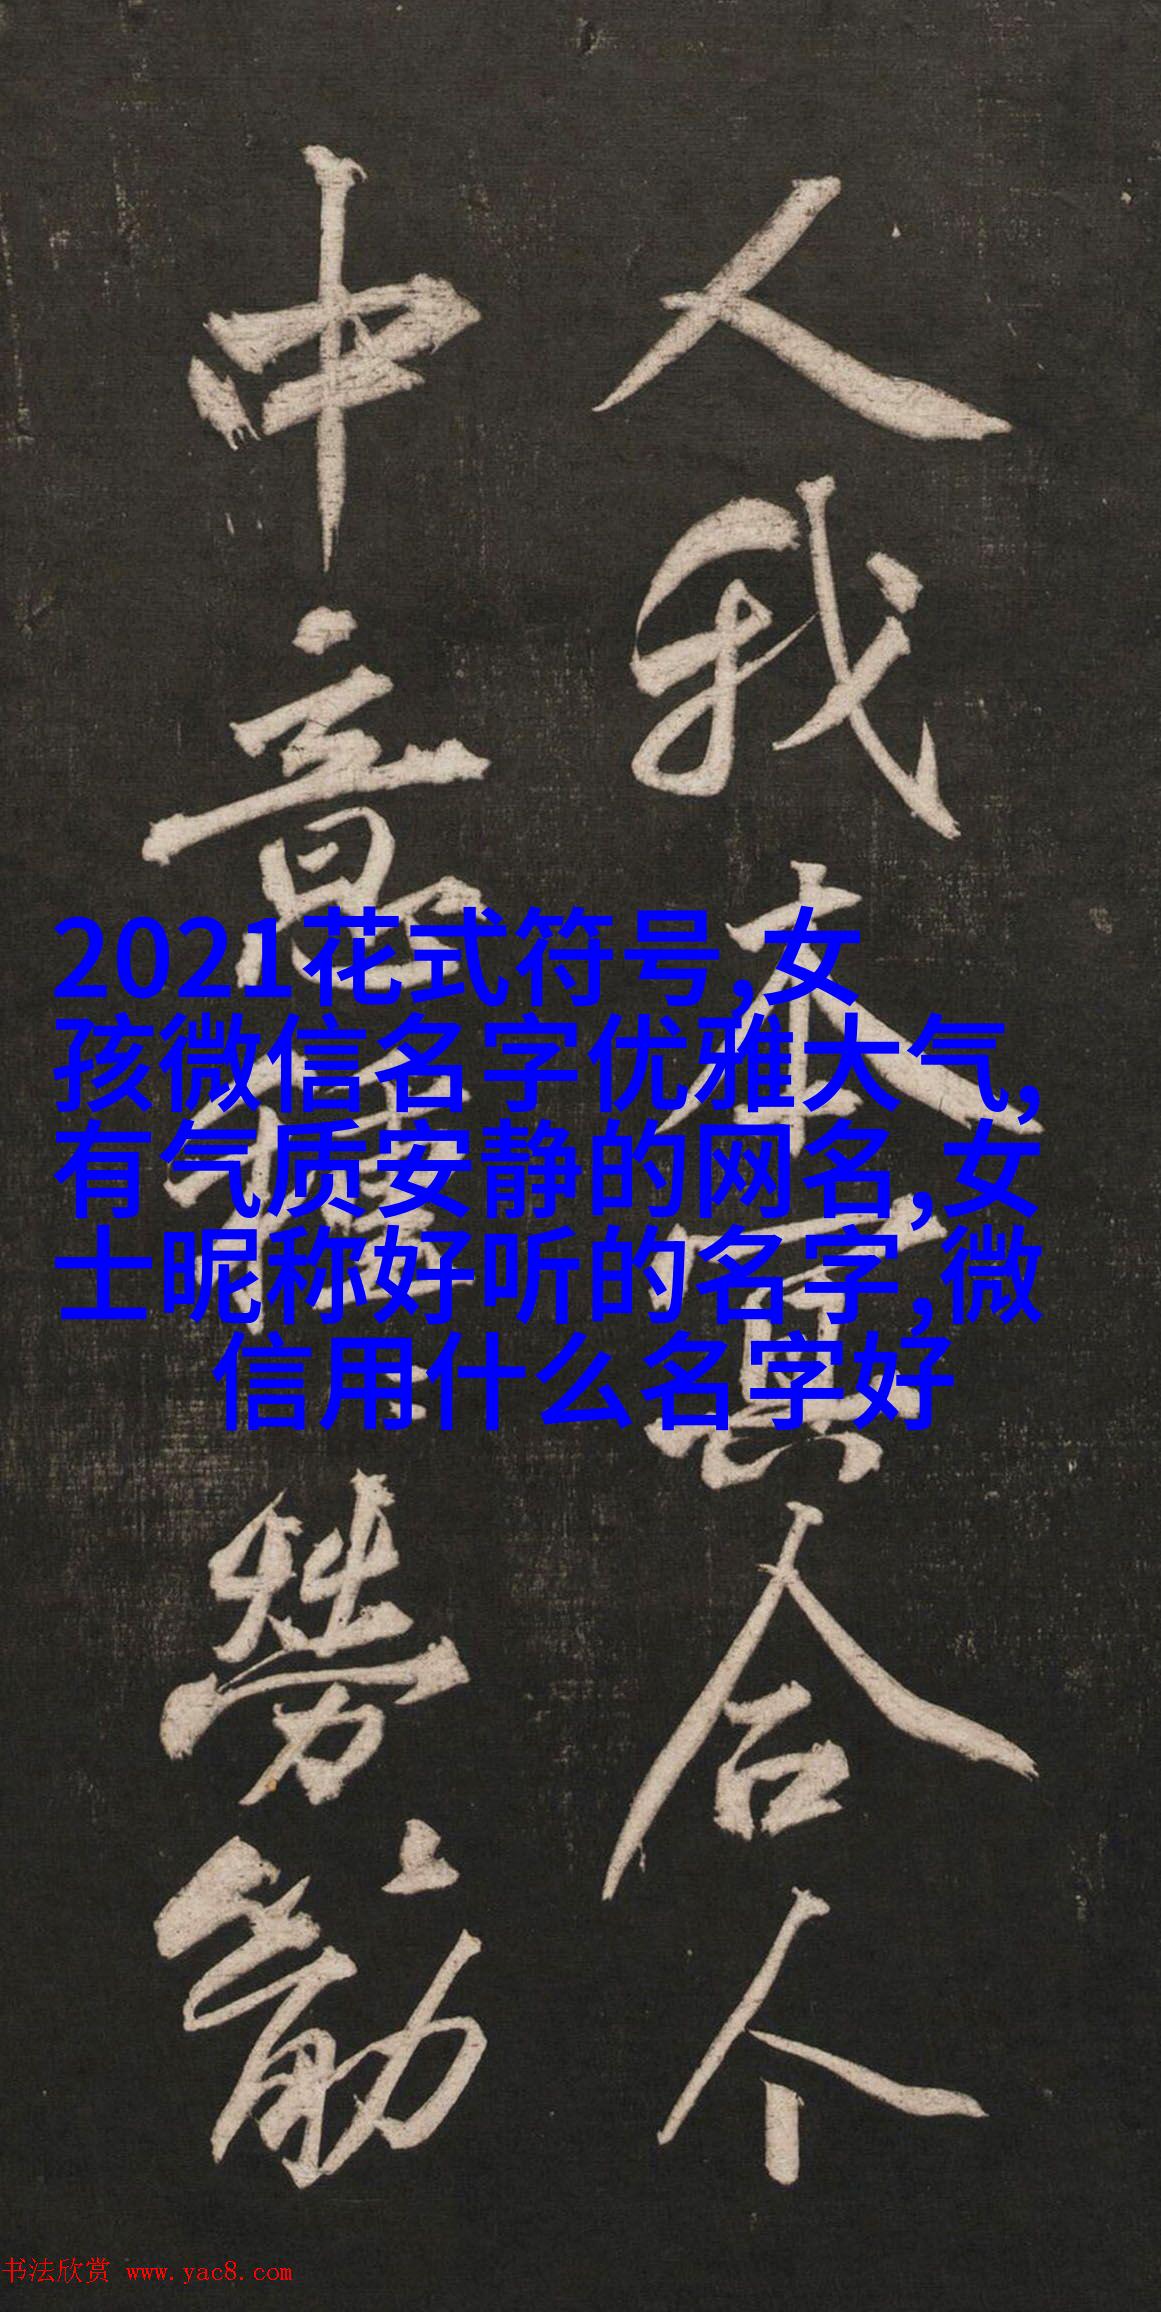 人我本冥合个
中意 劳劳筋
2021花式符号,女
孩微信名字优雅大气,
有气质安静的网名,女
士昵称好听的名字,微
信用什么名字好
书法欣赏 www.yac8.com